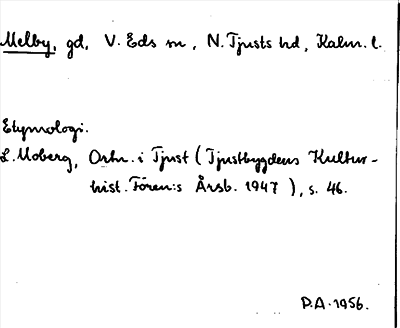 Melby, gd, V. Eds sn, N. Tjusts hd, Kalm. l.
Etymologi.
L. Moberg, Ortn. i Tjust (Tjustbygdens Kultur-
hist. Fören:s Årsb. 1947), s. 46.
D.A. 1956.